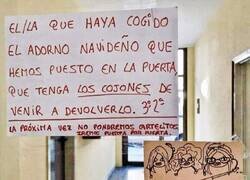 EL/LA QUE HAYA COGIDO
EL ADORNO NAVIDEÑO QUE
HEMOS PUESTO EN LA PUERTA
QUE TENGA LOS COJONES DE
VENIR A DEVOLVERLO. 3º2ª
LA PRÓXIMA VEZ NO PONDREMOS CARTELITOS
IREMOS PUERTA POR PUERTA.